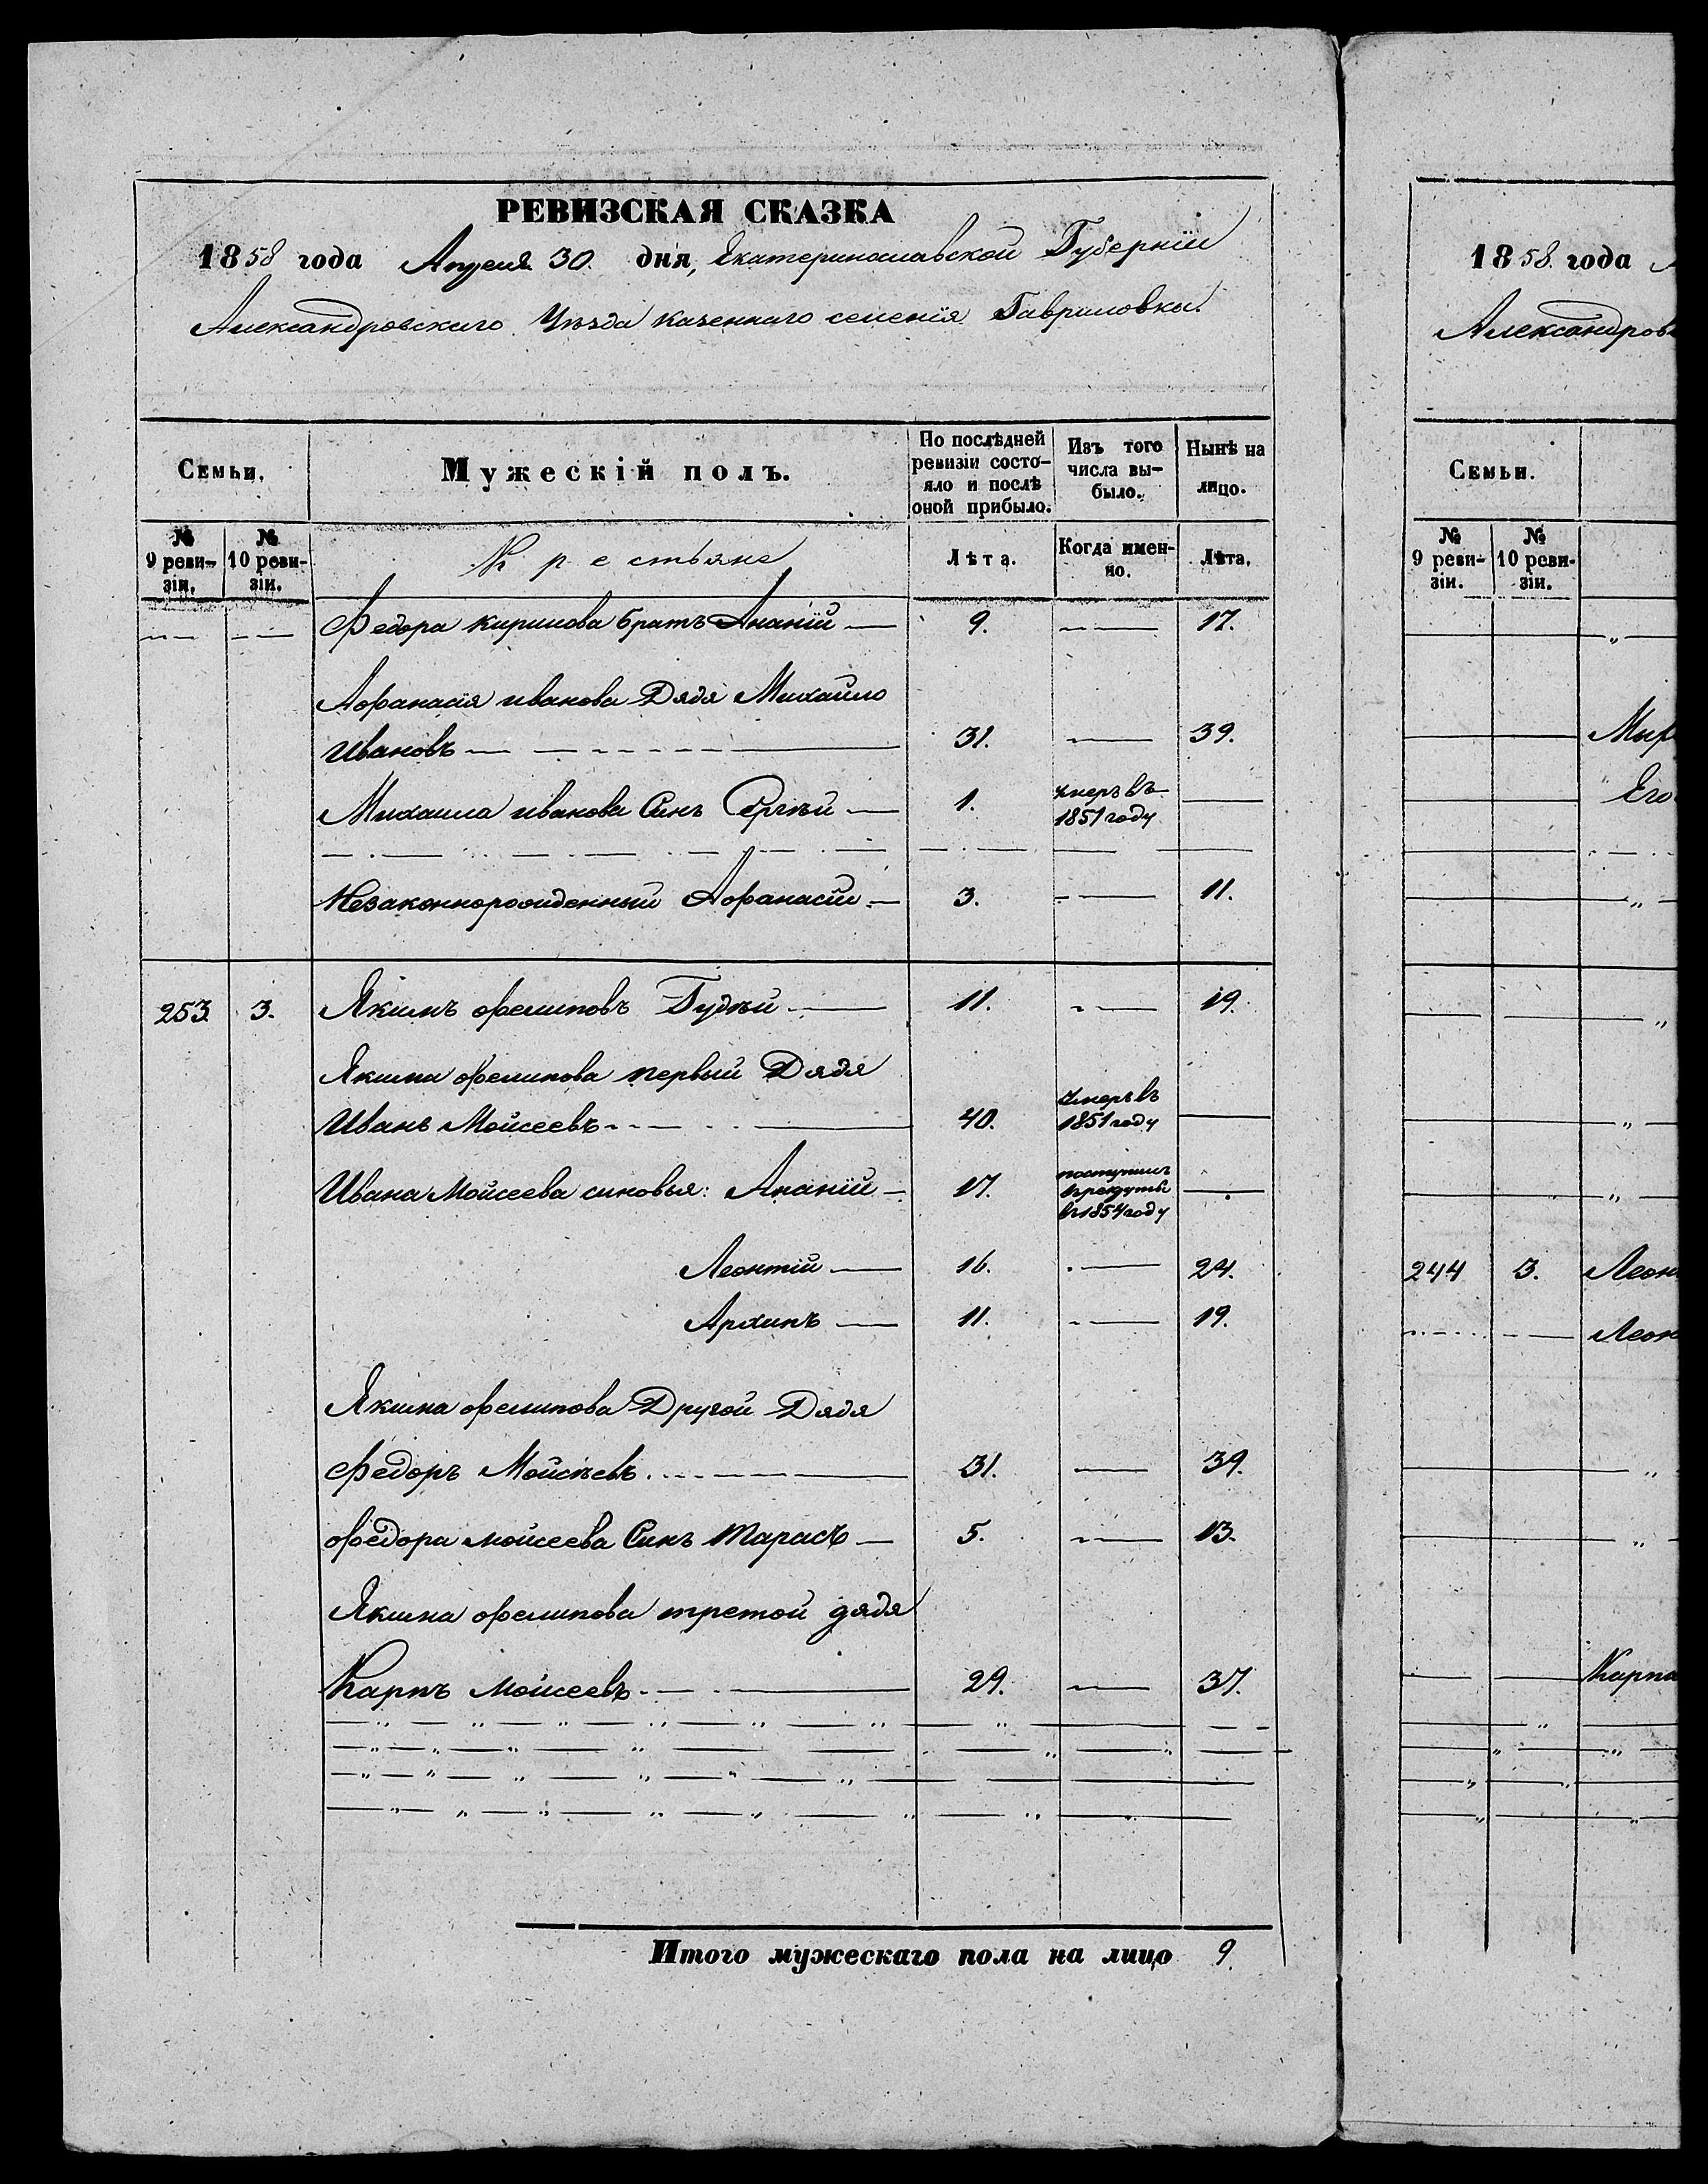 РЕВИЗСКАЯ СКАЗКА
1858 года Апреля 30. дня, Екатеринославской Губернїи
Александровскаго Уѣзда казеннаго селенїя Гавриловки.
Семьи.
Мужескій полъ.
По послѣдней ревизіи состо-
яло и послѣ
оной прибыло.
Изъ того
числа вы-
было.
Нынѣ на
лицо.
№ 9 реви-зіи.
№ 10 реви-зіи.
Крестьяне
Лѣта.
Когда имен-
но.
Лѣта.
Федора кирилова братъ Ананїй — 9. — 17.
Афанасия иванова Дядя Михайло
Ивановъ — 31. — 39.
Михаила иванова Синъ Сергѣй — 1. умеръ въ 1851 году —
Незаконнорожденный Афанасїй — 3. — 11.
253 3. Якимъ филиповъ Гудзъй — 11. — 19.
Якима филипова первый Дядя
Иванъ Мойсеевъ — 40. Умеръ въ 1851 году —
Ивана Мойсеева синовья: Ананїй — 17. поступилъ в рекруты в 1854 году —
Леонтїй — 16. — 24.
Архипъ — 11. — 19.
Якима филипова Другой Дядя
Федоръ Мойсѣевъ — 31. — 39.
Федора мойсеева Синъ Тарасъ — 5. — 13.
Якима филипова третой дядя
Карпъ мойсеевъ — 29. — 37.
Итого мужескаго пола на лицо 9.
1858 года
Александров
Семьи.
№ 9 реви-зіи.
№ 10 реви-зіи.
Мыр
Его
244 3. Леон
Леон
Карпа